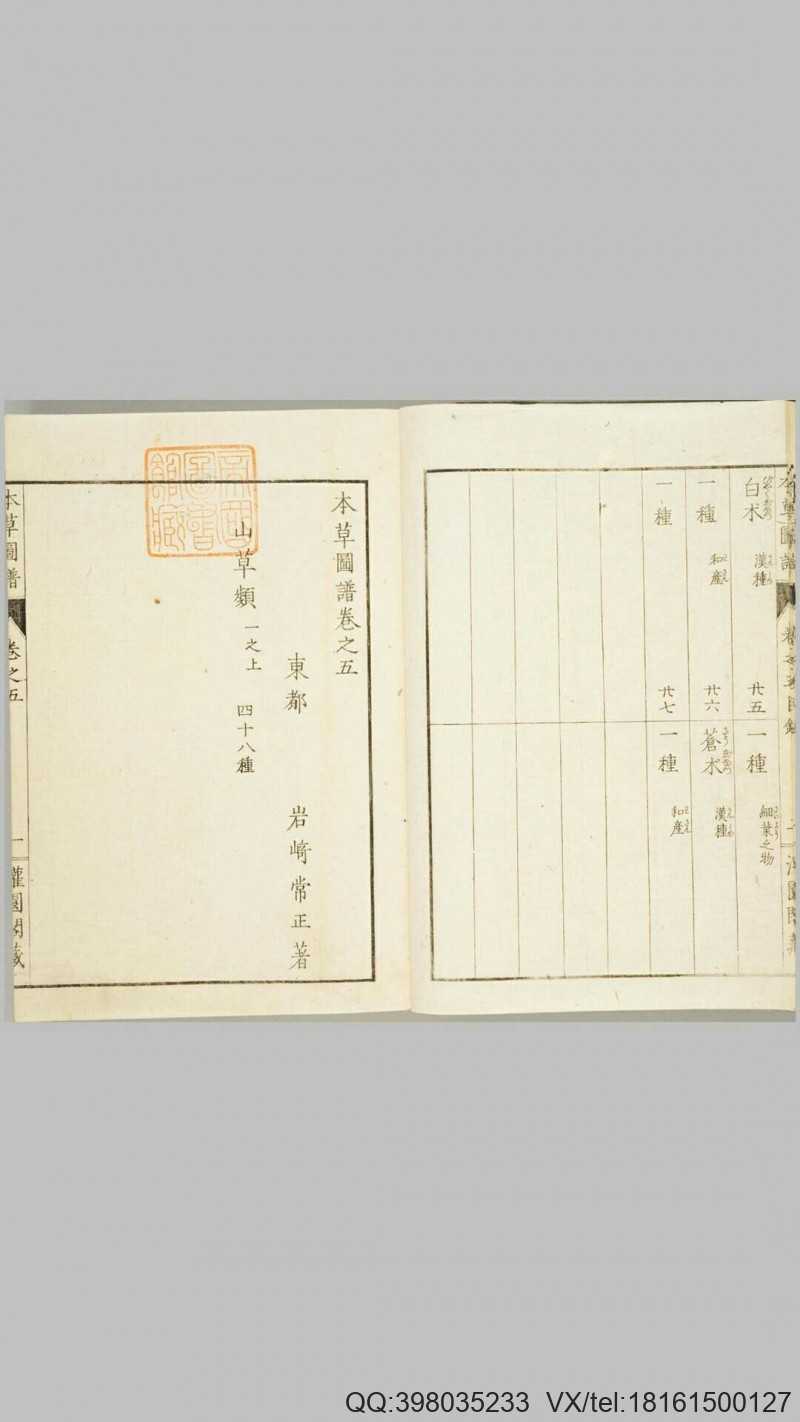 本草圖譜
白朮 漢種 廿五
一種 細葉之物
一種 和産 廿六
蒼朮 漢種
一種 廿七
一種 和産
本草圖譜卷之五
東都 岩﨑常正著
山草類 一之上 四十八種
帝國圖書館藏
本草圖譜 卷之五 一 灌園閣藏
QQ:398035233 VX/tel:18161500127